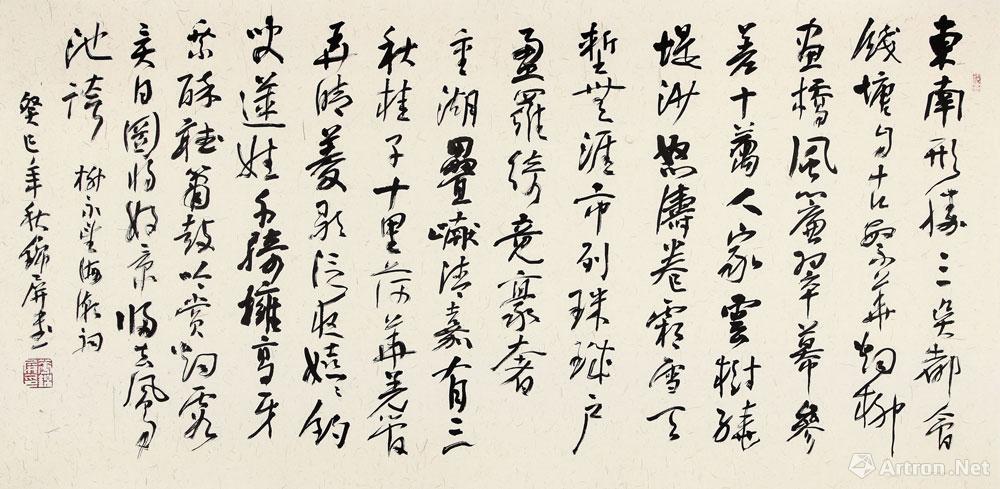 東南形勝三吳都會
錢塘自古繁華烟柳
畫橋風簾翠幕參
差十萬人家雲樹繞
堤沙怒濤卷霜雪天
塹無涯市列珠璣戶
盈羅綺竞豪奢
重湖疊巘清嘉有三
秋桂子十里荷華羌管
弄晴菱歌泛夜嬉〻釣
叟蓮娃千騎擁高牙
乘醉聽簫鼓吟賞烟霞
異日圖將好景歸去鳳
池誇 柳永望海潮詞
癸巳年秋錦屏書
Artron.Net